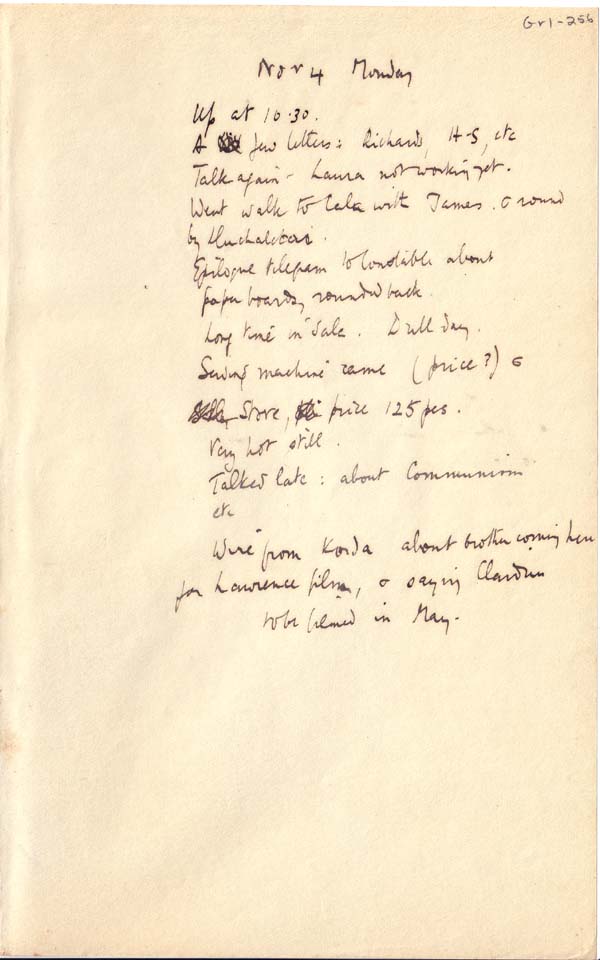 Gr1-256
Nov 4 Monday
Up at 10.30.
A few letters: Richards, H-S, etc
Talk again - Laura not working yet.
Went walk to Cala with James. & round
by
Epilogue telegram to Constable about
paper boards, rounded back.
Long time in Sala. Dull day.
Sewing machine came (price?) &
Stove, price 125 pes.
Very hot still.
Talked late: about Communism
etc
Wire from Korda about brother coming here
for Lawrence film, & saying Claudius
to be filmed in May.